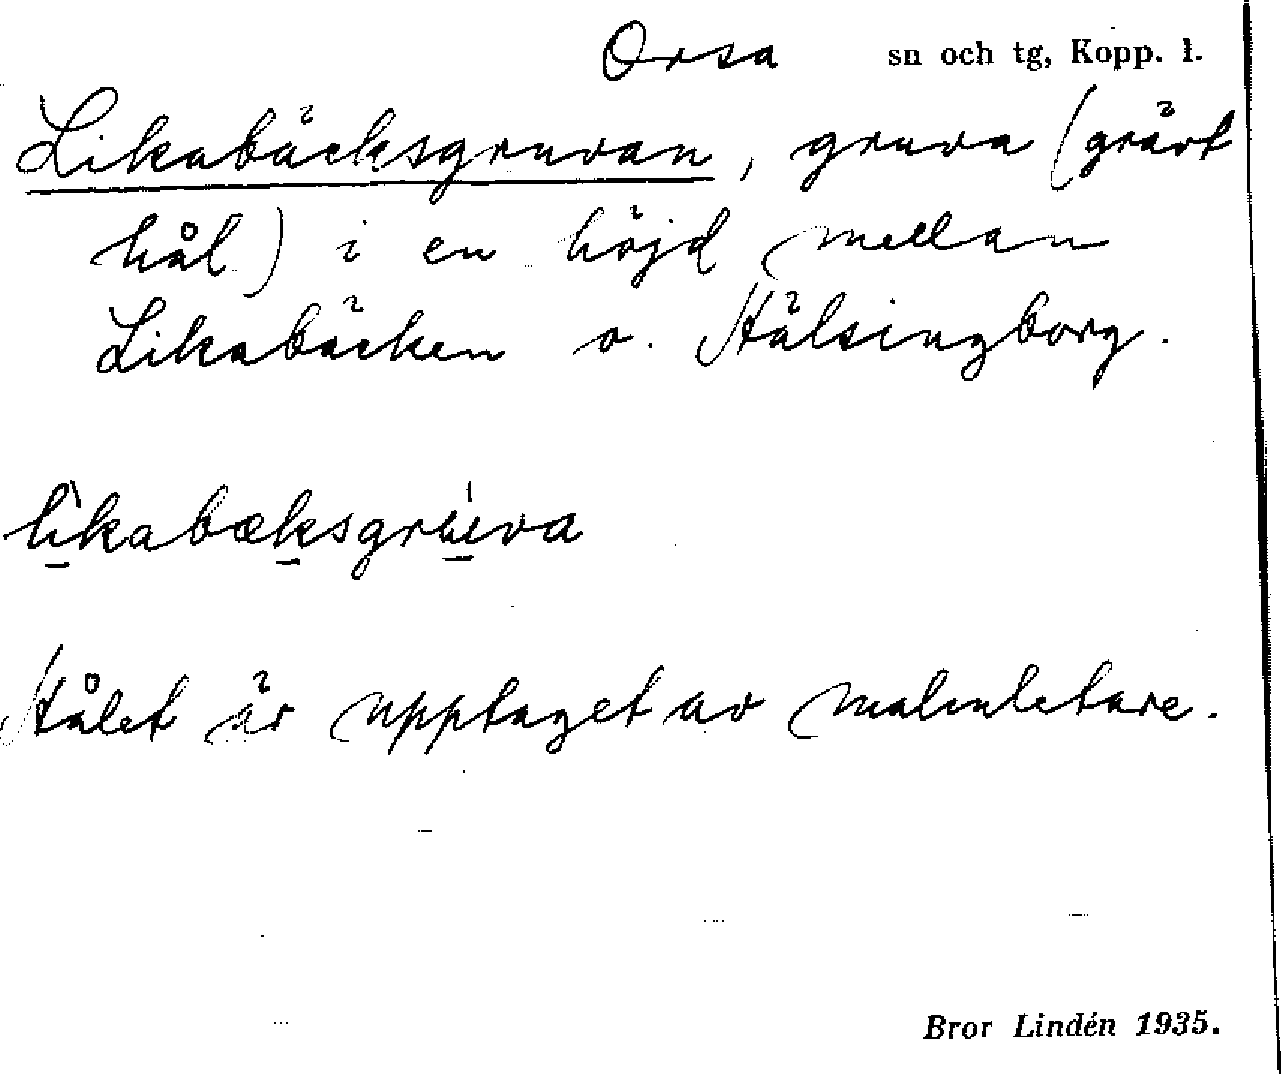 Orsa sn och tg, Kopp. l.
Likabäcksgruvan, gruva (grävt
hål) i en höjd mellan
Likabäcken o. Hälsingborg.
lìkabæksgrúva
Hålet är upptaget av malmletare.
Bror Lindén 1935.